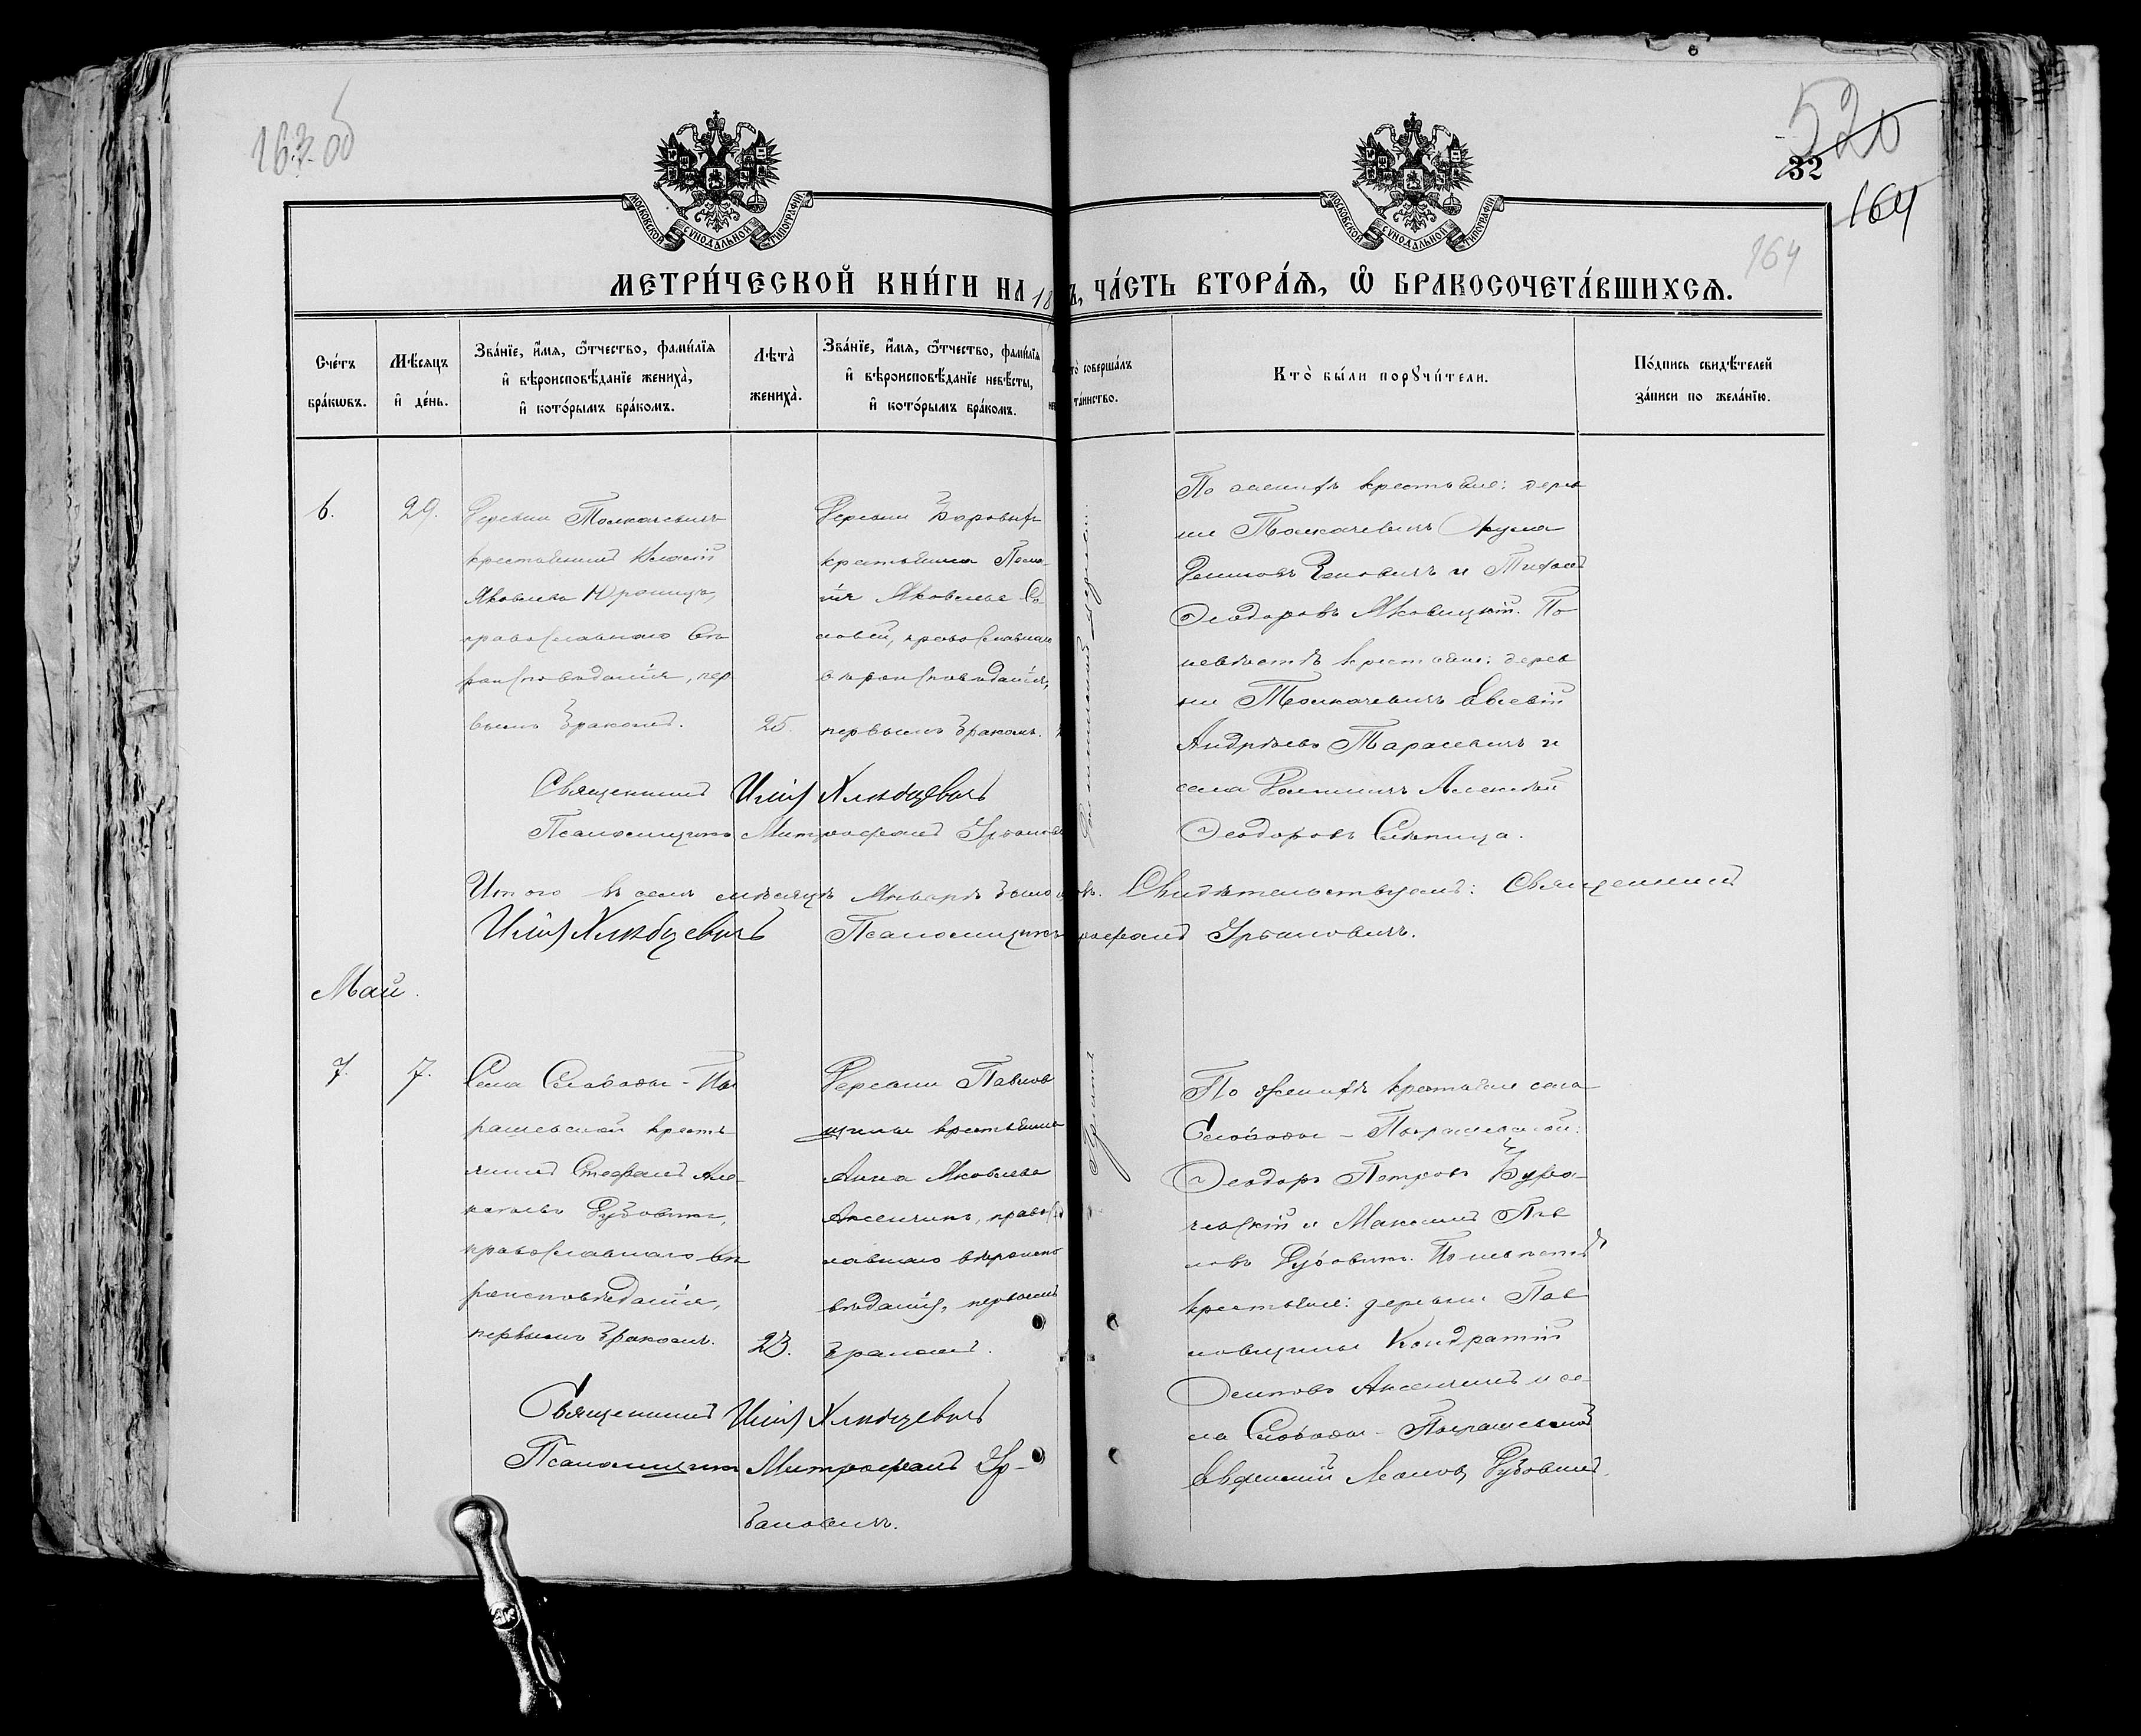 163 об
520
32
164
164
МОСКОВСКОЙ СУНОДАЛЬНОЙ ТИПОГРАФІИ
МОСКОВСКОЙ СУНОДАЛЬНОЙ ТИПОГРАФІИ
МЕТРИ́ЧЕСКОЙ КНИ́ГИ НА 18
Ъ, ЧА́СТЬ ВТОРА́Ѧ, Ѡ БРАКОСОЧЕТА́ВШИХСѦ.
Сче́тъ
бра́кѡвъ.
Мѣ́сѧцъ
и҆ де́нь.
Зва́нїе, и҆́мѧ, ѻ҆́тчество, фами́лїѧ
и҆ вѣроисповѣ́данїе жениха̀,
и҆ кото́рымъ бра́комъ.
Лѣ́та̀
жениха̀.
Зва́нїе, и҆́мѧ, ѻ҆́тчество, фами́лїѧ
и҆ вѣроисповѣ́данїе невѣ́сты,
и҆ кото́рымъ бра́комъ.
то̀ соверша́лъ
та́инство.
Кто̀ бы́ли порꙋчи́тели.
По́дпись свидѣ́телей
за́писи по жела́нїю.
6.
29.
Деревни Толкачевичъ
крестьянинъ
Яковлевъ
православнаго вѣ
роисповѣданія, пер
вымъ бракомъ.
25.
Деревни
крестьянка
Яковлева
православнаго
вѣроисповѣданія,
первымъ бракомъ.
По женихѣ крестьяне: дерев
ни Толкачевичъ
и
Ѳеодоровъ По
невѣстѣ крестьяне: дерев
ни Толкачевичъ Евсевій
Андреевъ Тарасевичъ и
села Алексѣй
Ѳеодоровъ Синица.
Священникъ Илія Хлѣбцевичъ
Псаломщикъ Митрофанъ Урбанов
Итого въ семъ мѣсяцѣ Январѣ было Свидѣтельствуемъ: Священникъ
Илія Хлѣбцевичъ Псаломщикъ рофанъ Урбановичъ.
Май.
7.
7.
Села Слободы-По
рашевской кресть
янинъ Стефанъ
Дубовикъ,
православнаго вѣ
роисповѣданія,
первымъ бракомъ.
23.
Деревни Павлов
щины крестьянка
Анна Яковлева
Аксючицъ, правос
лавнаго вѣроиспо
вѣданія, первымъ
бракомъ.
По женихѣ крестьяне села
Слободы-Порашевской:
Ѳеодоръ Петровъ
и Максимъ Пав
ловъ Дубовикъ. По невѣстѣ
крестьяне: деревни Пав
ловщины Кондратій
Осиповъ Аксючицъ и се
ла Слободы-Порашевской
Дубовикъ.
Священникъ Илія Хлѣбцевичъ
Псаломщикъ Митрофанъ Ур-
бановичъ.